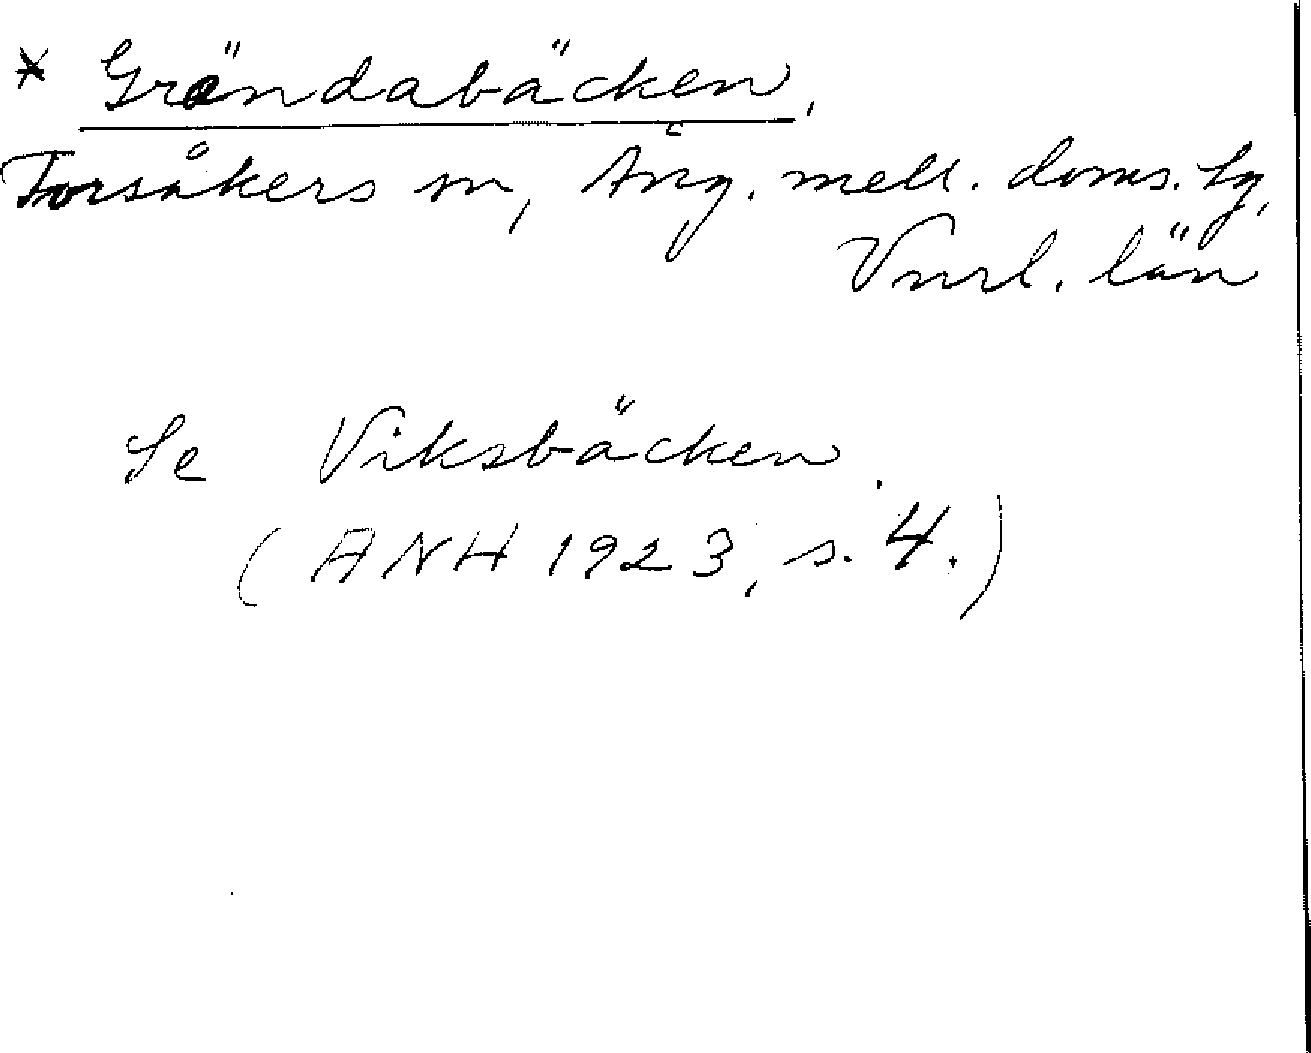 * Gröndabäcken,
Torsåkers sn, Ång. mell. doms. sg,
Vnrl. län
Se Viksbäcken.
(ANH 1923, s. 4.)